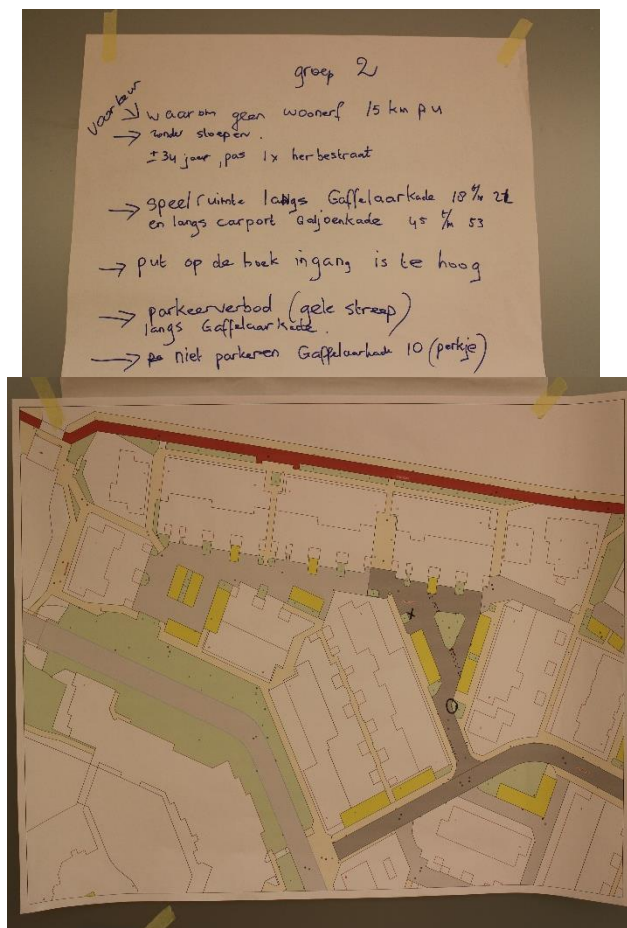 groep 2
voorkeur
→ waarom geen woonerf 15 km pu
→ zonder stoepen.
± 34 jaar, pas 1x herbestraat
→ speelruimte langs Gaffelaarkade 18 t/m 21
en langs carport Galjoenkade 45 t/m 53
→ put op de hoek ingang is te hoog
→ parkeerverbod (gele streep)
langs Gaffelaarkade.
→ niet parkeren Gaffelaarkade 10 (perkje)